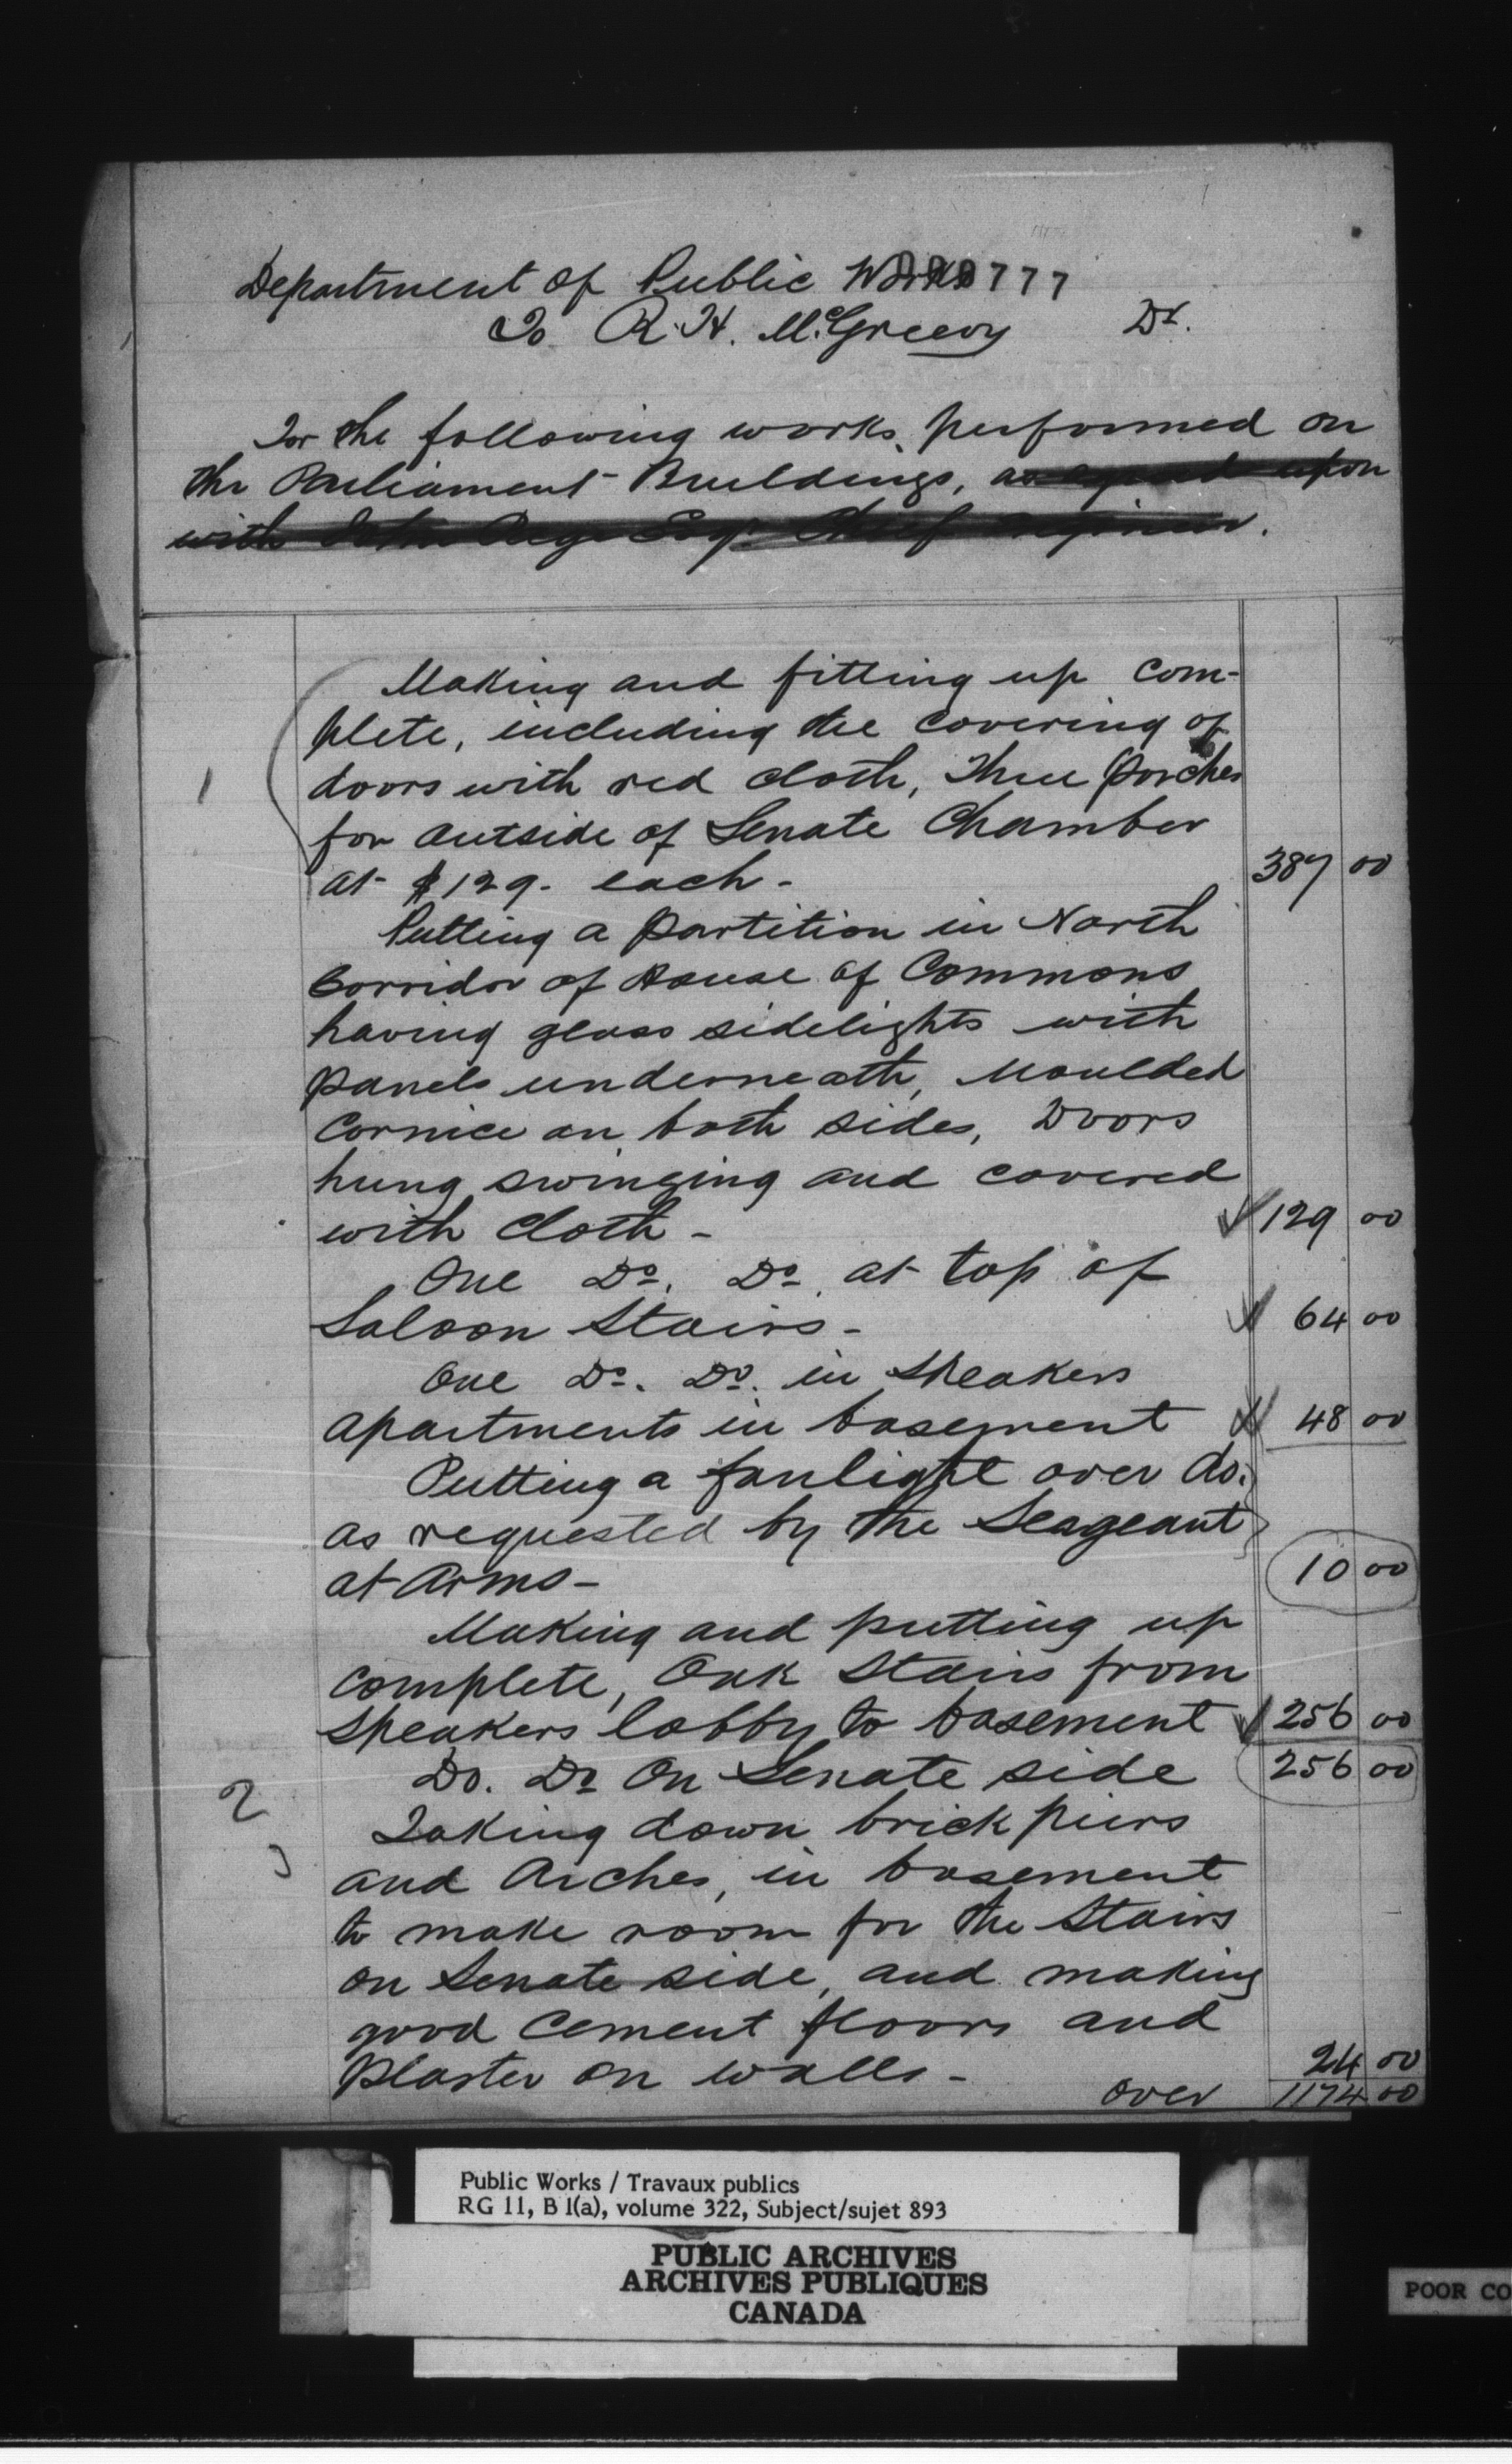 Department of Public Works 777
To R. H. McGreevy Dr.
For the following works performed on
the Parliament Buildings, as agreed upon
with John Page Esqr. Chief Engineer.
Making and fitting up com-
plete, including the covering of
1 doors with red cloth, Three Porches
for outside of Senate Chamber
at $129. each - 387 00
Putting a partition in North
Corridor of House of Commons
having glass sidelights with
panels underneath, Moulded
Cornice on both sides, Doors
hung swinging and covered
with Cloth - 129 00
One Do. Do. at top of
Saloon Stairs - 64 00
One Do. Do. in Speakers
apartments in basement 48 00
Putting a fanlight over do.
as requested by the Seageant
at Arms - 10 00
Making and putting up
complete, Oak Stairs from
Speakers lobby to basement 256 00
2 Do. Do On Senate side 256 00
Taking down brick piers
and Arches, in basement
to make room for the Stairs
on Senate side, and making
good Cement floors and
Plaster on walls - 24 00
over 1174 00
Public Works / Travaux publics
RG 11, B 1(a), volume 322, Subject/sujet 893
PUBLIC ARCHIVES
ARCHIVES PUBLIQUES
CANADA
POOR CO